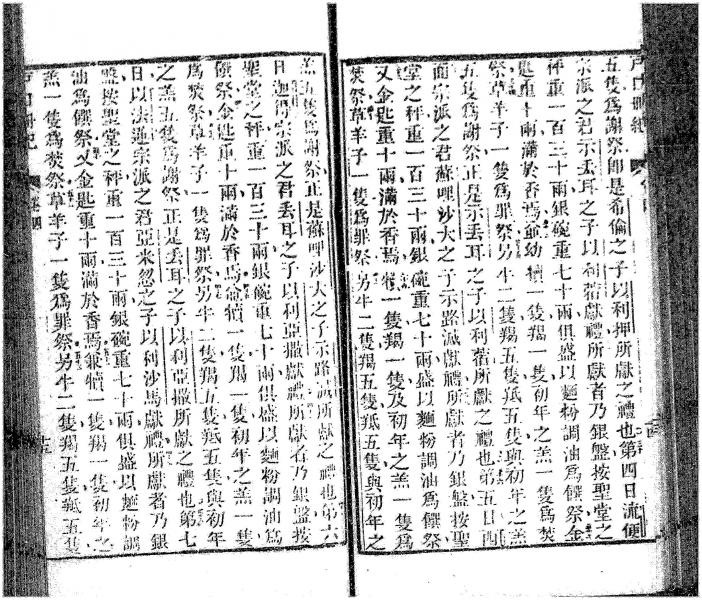 戶口冊紀
五隻爲謝祭卽是希倫之子以利押所獻之禮也第四日流便
宗派之君示丟耳之子以利蓿所獻禮所獻者乃銀盤按聖堂之
秤重一百三十兩銀碗重七十兩俱盛以麵粉調油爲饌祭金
匙重十兩滿於香焉並幼犢一隻羯一隻初年之羔一隻爲焚
祭草羊子一隻爲罪祭另牛二隻羯五隻羝五隻與初年之羔
五隻爲謝祭正是示丟耳之子以利蓿所獻之禮也第五日西
面宗派之君蘇唎沙大之子示路滅獻禮所獻者乃銀盤按聖
堂之秤重一百三十兩銀碗重七十兩盛以麵粉調油爲饌祭
又金匙重十兩滿於香焉犢一隻羯一隻及初年之羔一隻爲
焚祭草羊子一隻爲罪祭另牛二隻羯五隻羝五隻與初年之
羔五隻爲謝祭正是蘇唎沙大之子示路滅所獻之禮也第六
日迦得宗派之君丟耳之子以利亞撒獻禮所獻者乃銀盤按
聖堂之秤重一百三十兩銀碗重七十兩俱盛以麵粉調油爲
饌祭金匙重十兩滿於香焉並犢一隻羯一隻初年之羔一隻
爲焚祭草羊子一隻爲罪祭另牛二隻羯五隻羝五隻與初年
之羔五隻爲謝祭正是丟耳之子以利亞撒所獻之禮也第七
日以法蓮宗派之君亞米忽之子以利沙馬獻禮所獻者乃銀
盤按聖堂之秤重一百三十兩銀碗重七十兩俱盛以麵粉調
油爲饌祭又金匙重十兩滿於香焉犢一隻羯一隻初年之
羔一隻爲焚祭草羊子一隻爲罪祭另牛二隻羯五隻羝五隻
戶口冊紀 卷四